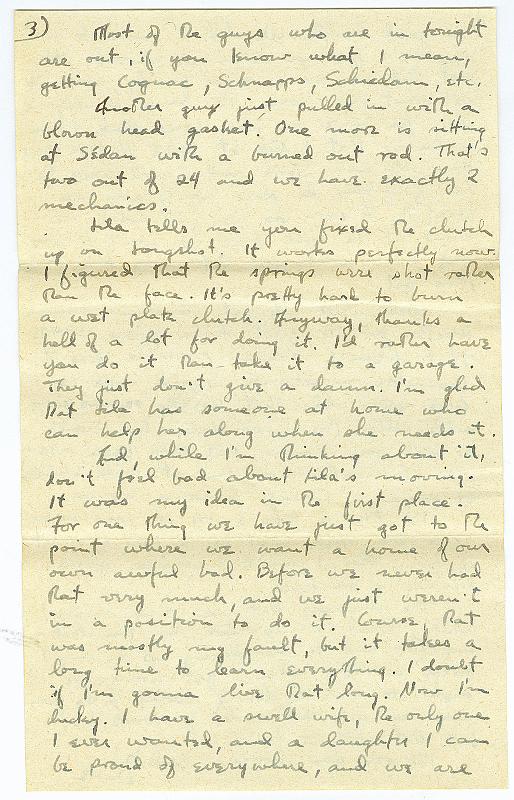 3)
Most of the guys who are in tonight
are out, if you know what I mean,
getting Cognac, Schnapps, Schiedam, etc.
Another guy just pulled in with a
blown head gasket. One more is sitting
at Sédan with a burned out rod. That's
two out of 24 and we have exactly 2
mechanics.
Lila tells me you fixed the clutch
up on Longshot. It works perfectly now.
I figured that the springs were shot rather
than the face. It's pretty hard to burn
a wet plate clutch. Anyway, thanks a
hell of a lot for doing it. I'd rather have
you do it than take it to a garage.
They just don't give a damn. I'm glad
that Lila has someone at home who
can help her along when she needs it.
And, while I'm thinking about it,
don't feel bad about Lila's moving.
It was my idea in the first place.
For one thing we have just got to the
point where we want a home of our
own awful bad. Before we never had
that very much, and we just weren't
in a position to do it. Course, that
was mostly my fault, but it takes a
long time to learn everything. I doubt
if I'm gonna live that long. Now I'm
lucky. I have a swell wife, the only one
I ever wanted, and a daughter I can
be proud of everywhere, and we are